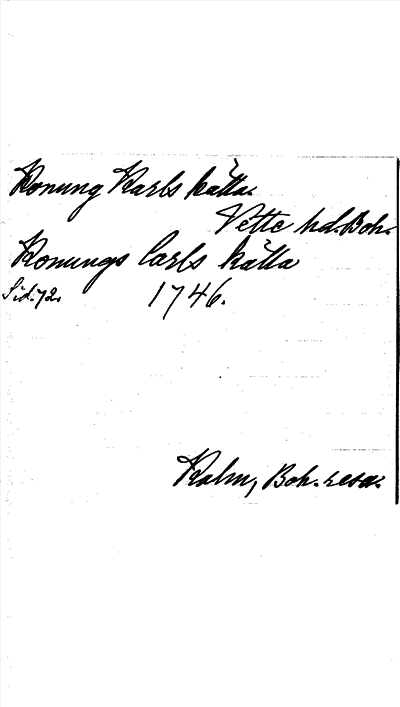 Konung Karls källa.
Vette hd. Boh.
Konungs Carls källa
Sid. 72. 1746.
Kalm, Boh. resa.